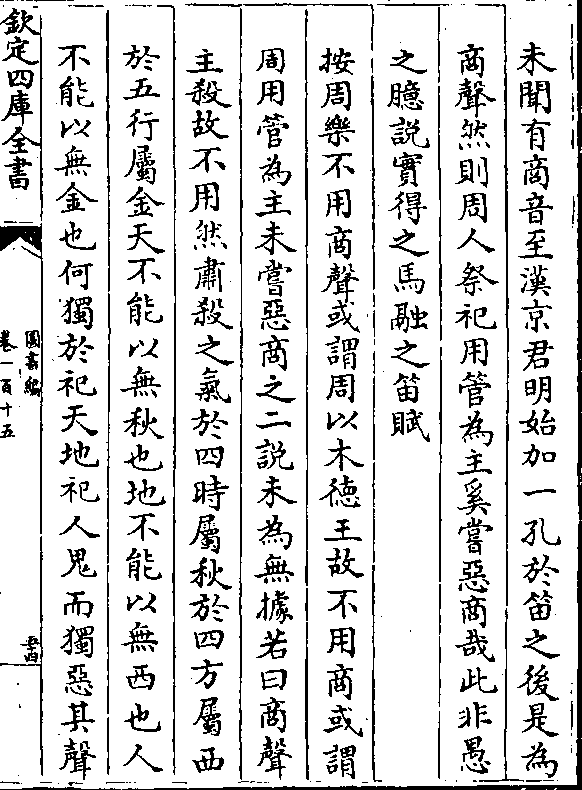 未聞有商音至漢京君明始加一孔於笛之後是為
商聲然則周人祭祀用管為主奚嘗惡商哉此非愚
之臆說實得之馬融之笛賦
按周樂不用商聲或謂周以木德王故不用商或謂
周用管為主未嘗惡商之二説未為無據若曰商聲
主殺故不用然肅殺之氣於四時屬秋於四方屬西
於五行屬金天不能以無秋也地不能以無西也人
不能以無金也何獨於祀天地祀人鬼而獨惡其聲
欽定四庫全書
圖書編
卷一百十五